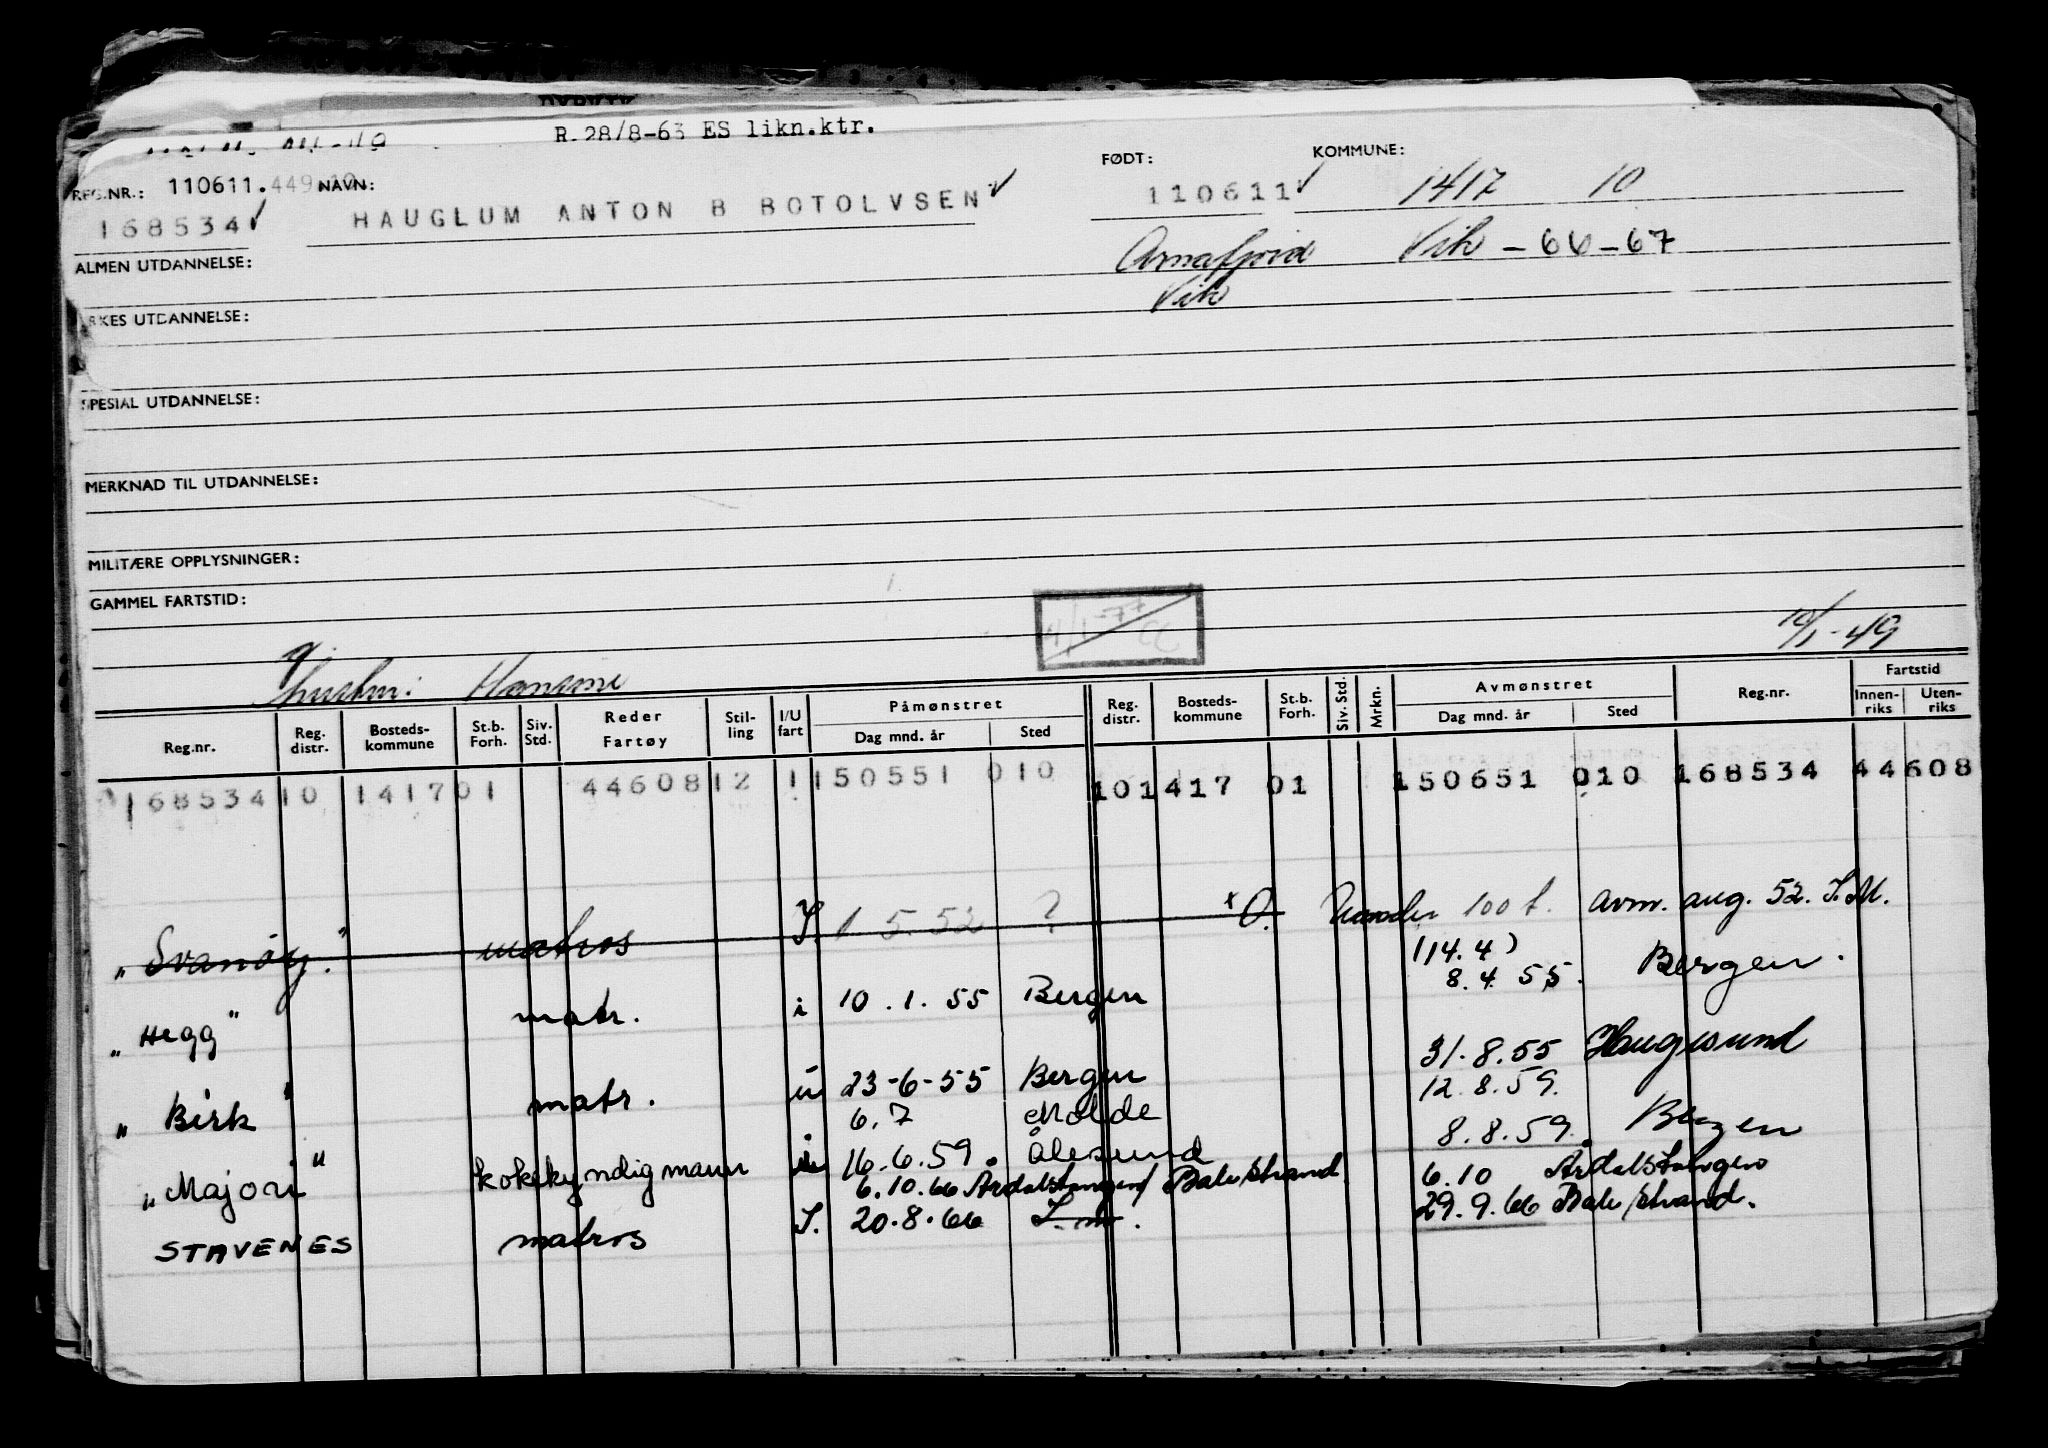 R. 28/8-63 ES likn.ktr.
REG.NR.: 110611.449 NAVN: FØDT: KOMMUNE:
168534 ✓ HAUGLUM ANTON B BOTOLVSEN ✓ 110611 ✓ 1417 10
ALMEN UTDANNELSE: Arnafjord Vik - 66-67
Vik
RKES UTDANNELSE:
SPESIAL UTDANNELSE:
MERKNAD TIL UTDANNELSE:
MILITÆRE OPPLYSNINGER:
GAMMEL FARTSTID:
10/1-49
g. hustru: Hansine
Reg.nr. Reg. distr. Bosteds-kommune St.b. Forh. Siv. Std. Reder Fartøy Stil-ling I/U fart Påmønstret Dag mnd. år Sted Reg. distr. Bosteds-kommune St.b. Forh. Siv. Std. Mrkn. Avmønstret Dag mnd. år Sted Reg.nr. Fartstid Innen-riks Uten-riks
168534 10 1417 01 44608 12 1 150551 010 10 1417 01 150651 010 168534 44608
"Svanøy" matros I. 1 5.52 ? x O. under 100 t. avm. aug. 52. I.M.
(14.4)
"Hegg" matr. i 10.1.55 Bergen 8.4.55. Bergen.
"Birk" matr. 23-6-55 Bergen 31.8.55 Haugesund
6.7 Molde 12.8.59.
"Majori" kokekyndigmann 16.6.59. Ålesund 8.8.59. Bergen
6.10.66 Årdalstangen/Balestrand 6.10 Årdalstangen
STAVENES matros I. 20.8.66 I.m. 29.9.66 Balestrand.